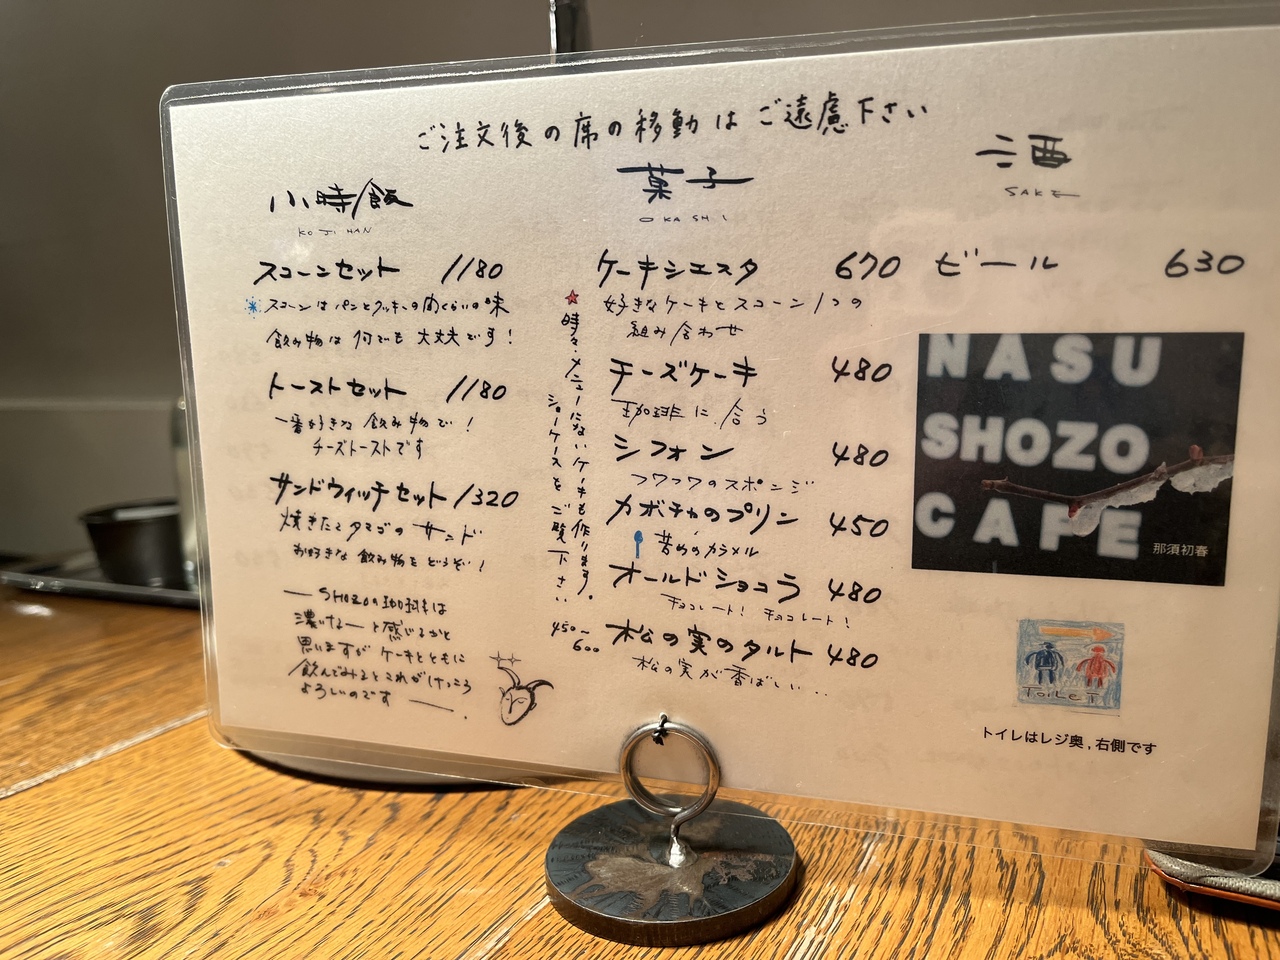 ご注文後の席の移動はご遠慮下さい
小時飯
KOJIHAN
スコーンセット 1180
スコーンはパンとクッキーの間くらいの味
飲み物は何でも大丈夫です!
トーストセット 1180
一番好きな飲み物で!
チーズトーストです
サンドウィッチセット 1320
焼きたてタマゴのサンド
お好きな飲み物をどうぞ!
— SHOZOの珈琲は
濃いなーと感じるかと
思いますがケーキとともに
飲んでみるとこれがけっこう
よろしいのです —.
菓子
OKASHI
時々メニューにないケーキも作ります。
ショーケースをご覧下さい
450〜
600
ケーキシエスタ 670
好きなケーキとスコーン1つの
組み合わせ
チーズケーキ 480
珈琲に合う
シフォン 480
フワフワのスポンジ
カボチャのプリン 450
苦めのカラメル
オールドショコラ 480
チョコレート! チョコレート!
松の実のタルト 480
松の実が香ばしい...
酒
SAKE
ビール 630
NASU
SHOZO
CAFE
那須初春
TOILET
トイレはレジ奥,右側です